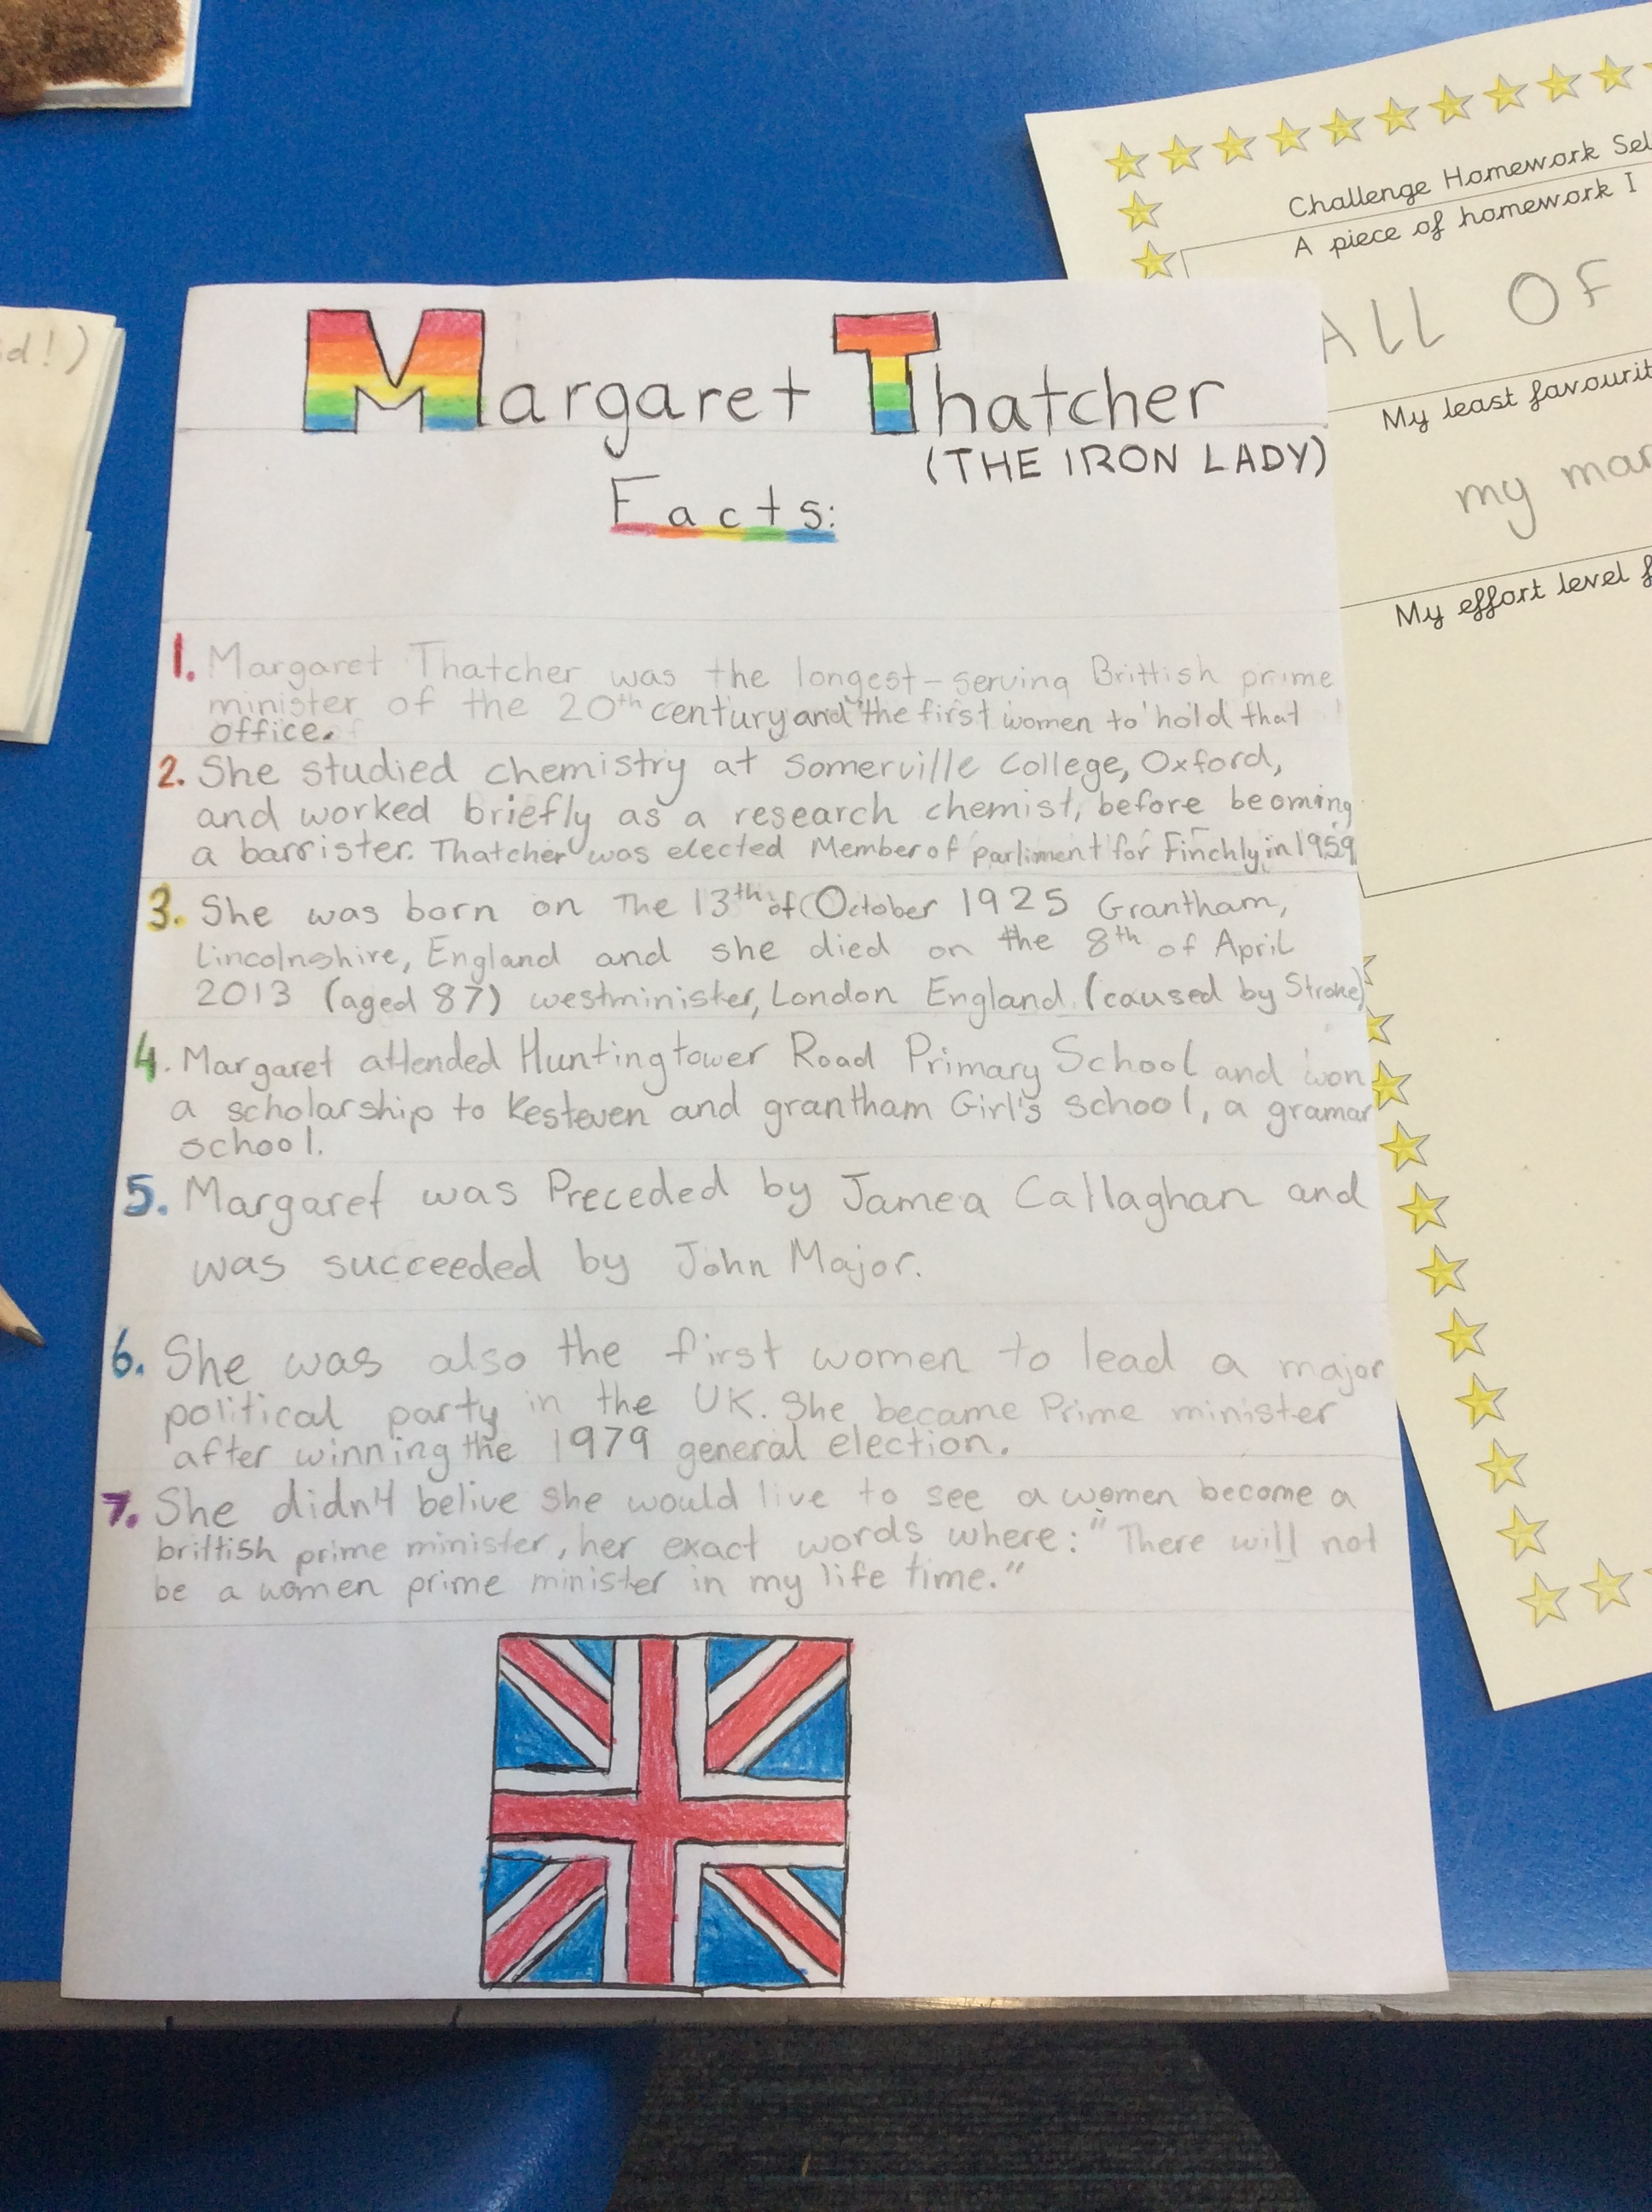 id!)
Challenge Homework Sel
A piece of homework I
ALL OF
My least favourit
my mar
My effort level f
Margaret Thatcher
(THE IRON LADY)
Facts:
1. Margaret Thatcher was the longest-serving Brittish prime
minister of the 20th century and the first women to hold that
office.
2. She studied chemistry at Somerville College, Oxford,
and worked briefly as a research chemist, before beoming
a barrister. Thatcher was elected Member of parliment for Finchly in 1959
3. She was born on The 13th of October 1925 Grantham,
Lincolnshire, England and she died on the 8th of April
2013 (aged 87) westminister, London England (caused by Stroke)
4. Margaret attended Huntingtower Road Primary School and won
a scholarship to Kesteven and grantham Girl's school, a gramar
school.
5. Margaret was Preceded by Jamea Callaghan and
was succeeded by John Major.
6. She was also the first women to lead a major
political party in the UK. She became Prime minister
after winning the 1979 general election.
7. She didn't belive she would live to see a women become a
brittish prime minister, her exact words where: "There will not
be a women prime minister in my life time."